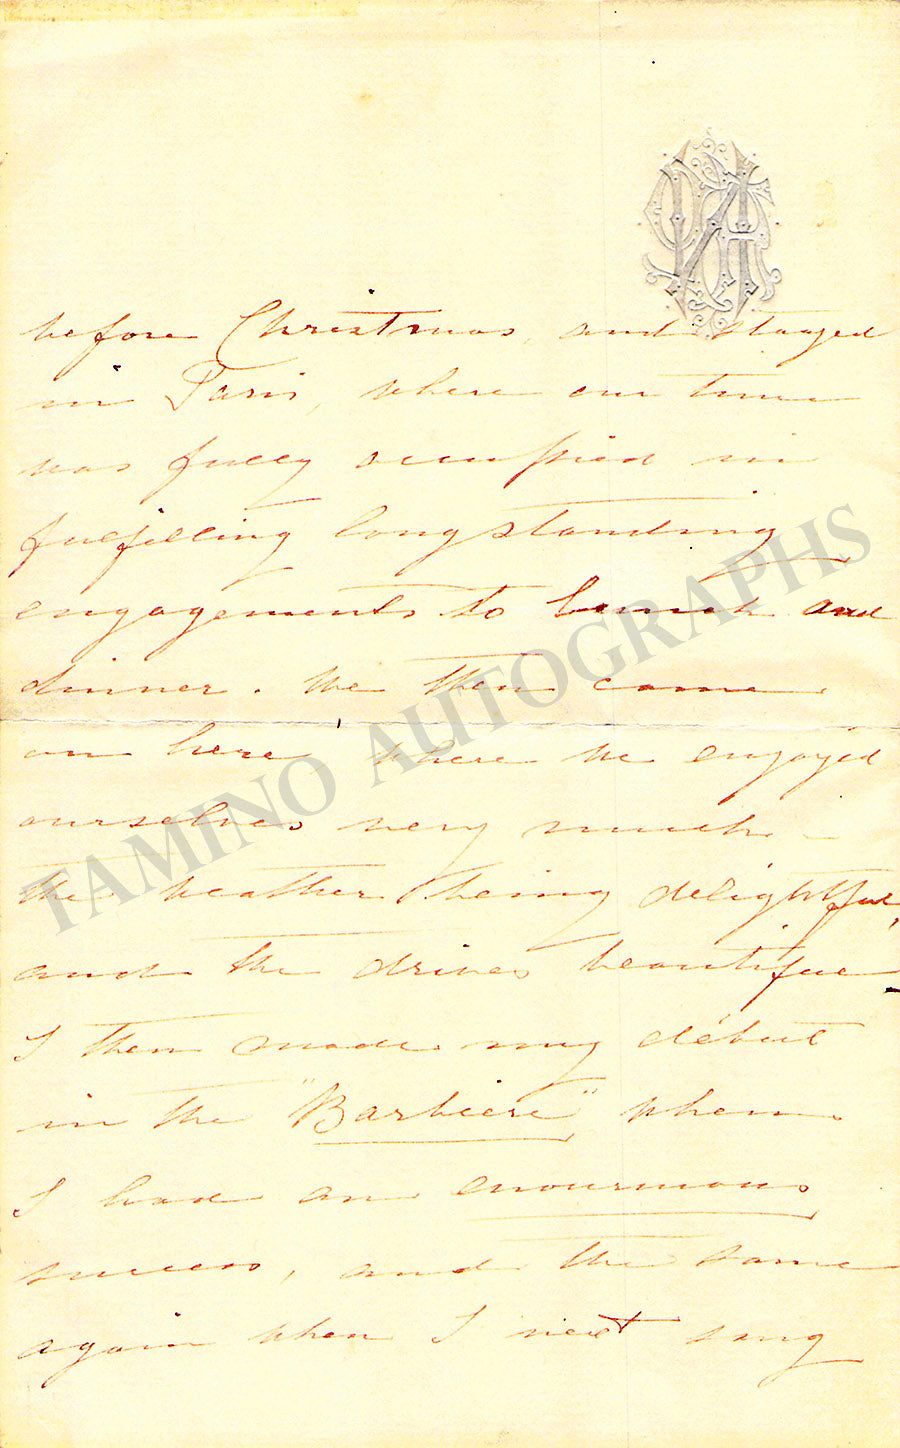 before Christmas, and stayed
in Paris, where our time
was fully occupied in
fulfilling longstanding
engagements to lunch and
dinner. We then came
on here where we enjoyed
ourselves very much –
the weather being delightful,
and the drives beautiful –
I then made my début
in the "Barbiere", when
I had an enourmous
success, and the same
again when I next sang
TAMINO AUTOGRAPHS